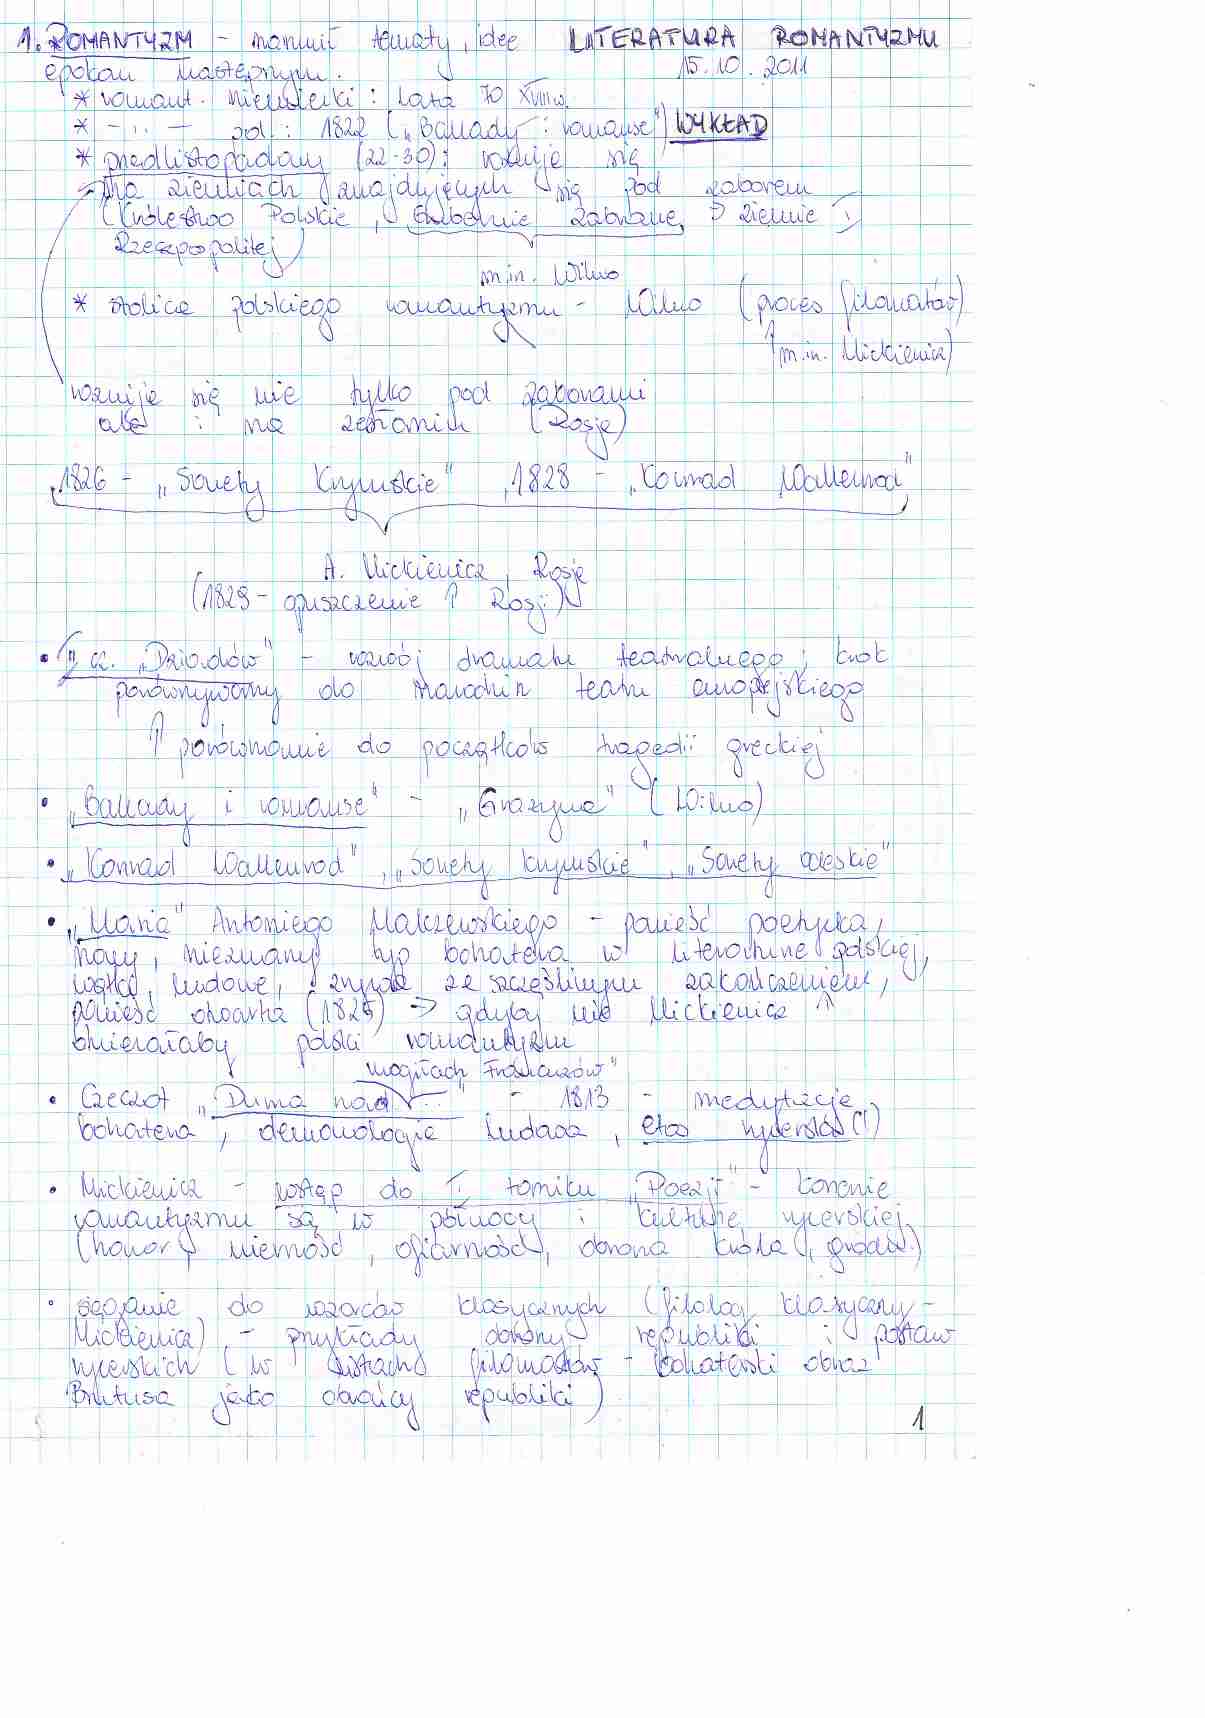 1. ROMANTYZM - narzucił tematy, idee LITERATURA ROMANTYZMU
epokom następnym. 15.10.2011
* romant. niemiecki: lata 70 XVIII w.
* -..- pol.: 1822 („Ballady i romanse") WYKŁAD
* przedlistopadowy (22-30): rozwija się
na ziemiach znajdujących się pod zaborem
(Królestwo Polskie, zabrane, ziemie I
Rzeczpospolitej)
m.in. Wilno
* stolica polskiego romantyzmu - Wilno (proces filomatów)
↑ m.in. Mickiewicz)
rozwija się nie tylko pod zaborami
ale i na zesłaniach (Rosja)
1826 - „Sonety Krymskie", 1828 - „Konrad Wallenrod"
A. Mickiewicz, Rosja
(1829 - opuszczenie ↑ Rosji)
• II cz. „Dziadów" - rozwój dramatu teatralnego; krok
porównywany do narodzin teatru europejskiego
↑ porównanie do początków tragedii greckiej
• „Ballady i romanse" - „Grażyna" (Wilno)
• „Konrad Wallenrod", „Sonety krymskie", „Sonety odeskie"
• „Maria" Antoniego Malczewskiego - powieść poetycka,
nowy, nieznany typ bohatera w literaturze polskiej,
wątki ludowe, zrywa ze szczęśliwym zakończeniem,
powieść otwarta (1825) → gdyby nie Mickiewicz ↑
otwierałaby polski romantyzm
mogiłach Francuzów"
• Czeczot „Duma nad ..." - 1813 - medytacje
bohatera, demonologia ludowa, etos rycerski (!)
• Mickiewicz - wstęp do I tomiku „Poezji" - korzenie
romantyzmu są w północy i kulturze rycerskiej
(honor, wierność, ofiarność, obrona króla, grodu)
• sięganie do wzorców klasycznych (filolog klasyczny -
Mickiewicz) - przykłady obrony republiki i postaw
rycerskich (w listach filomatów - bohaterski obraz
Brutusa jako obrońcy republiki)
1